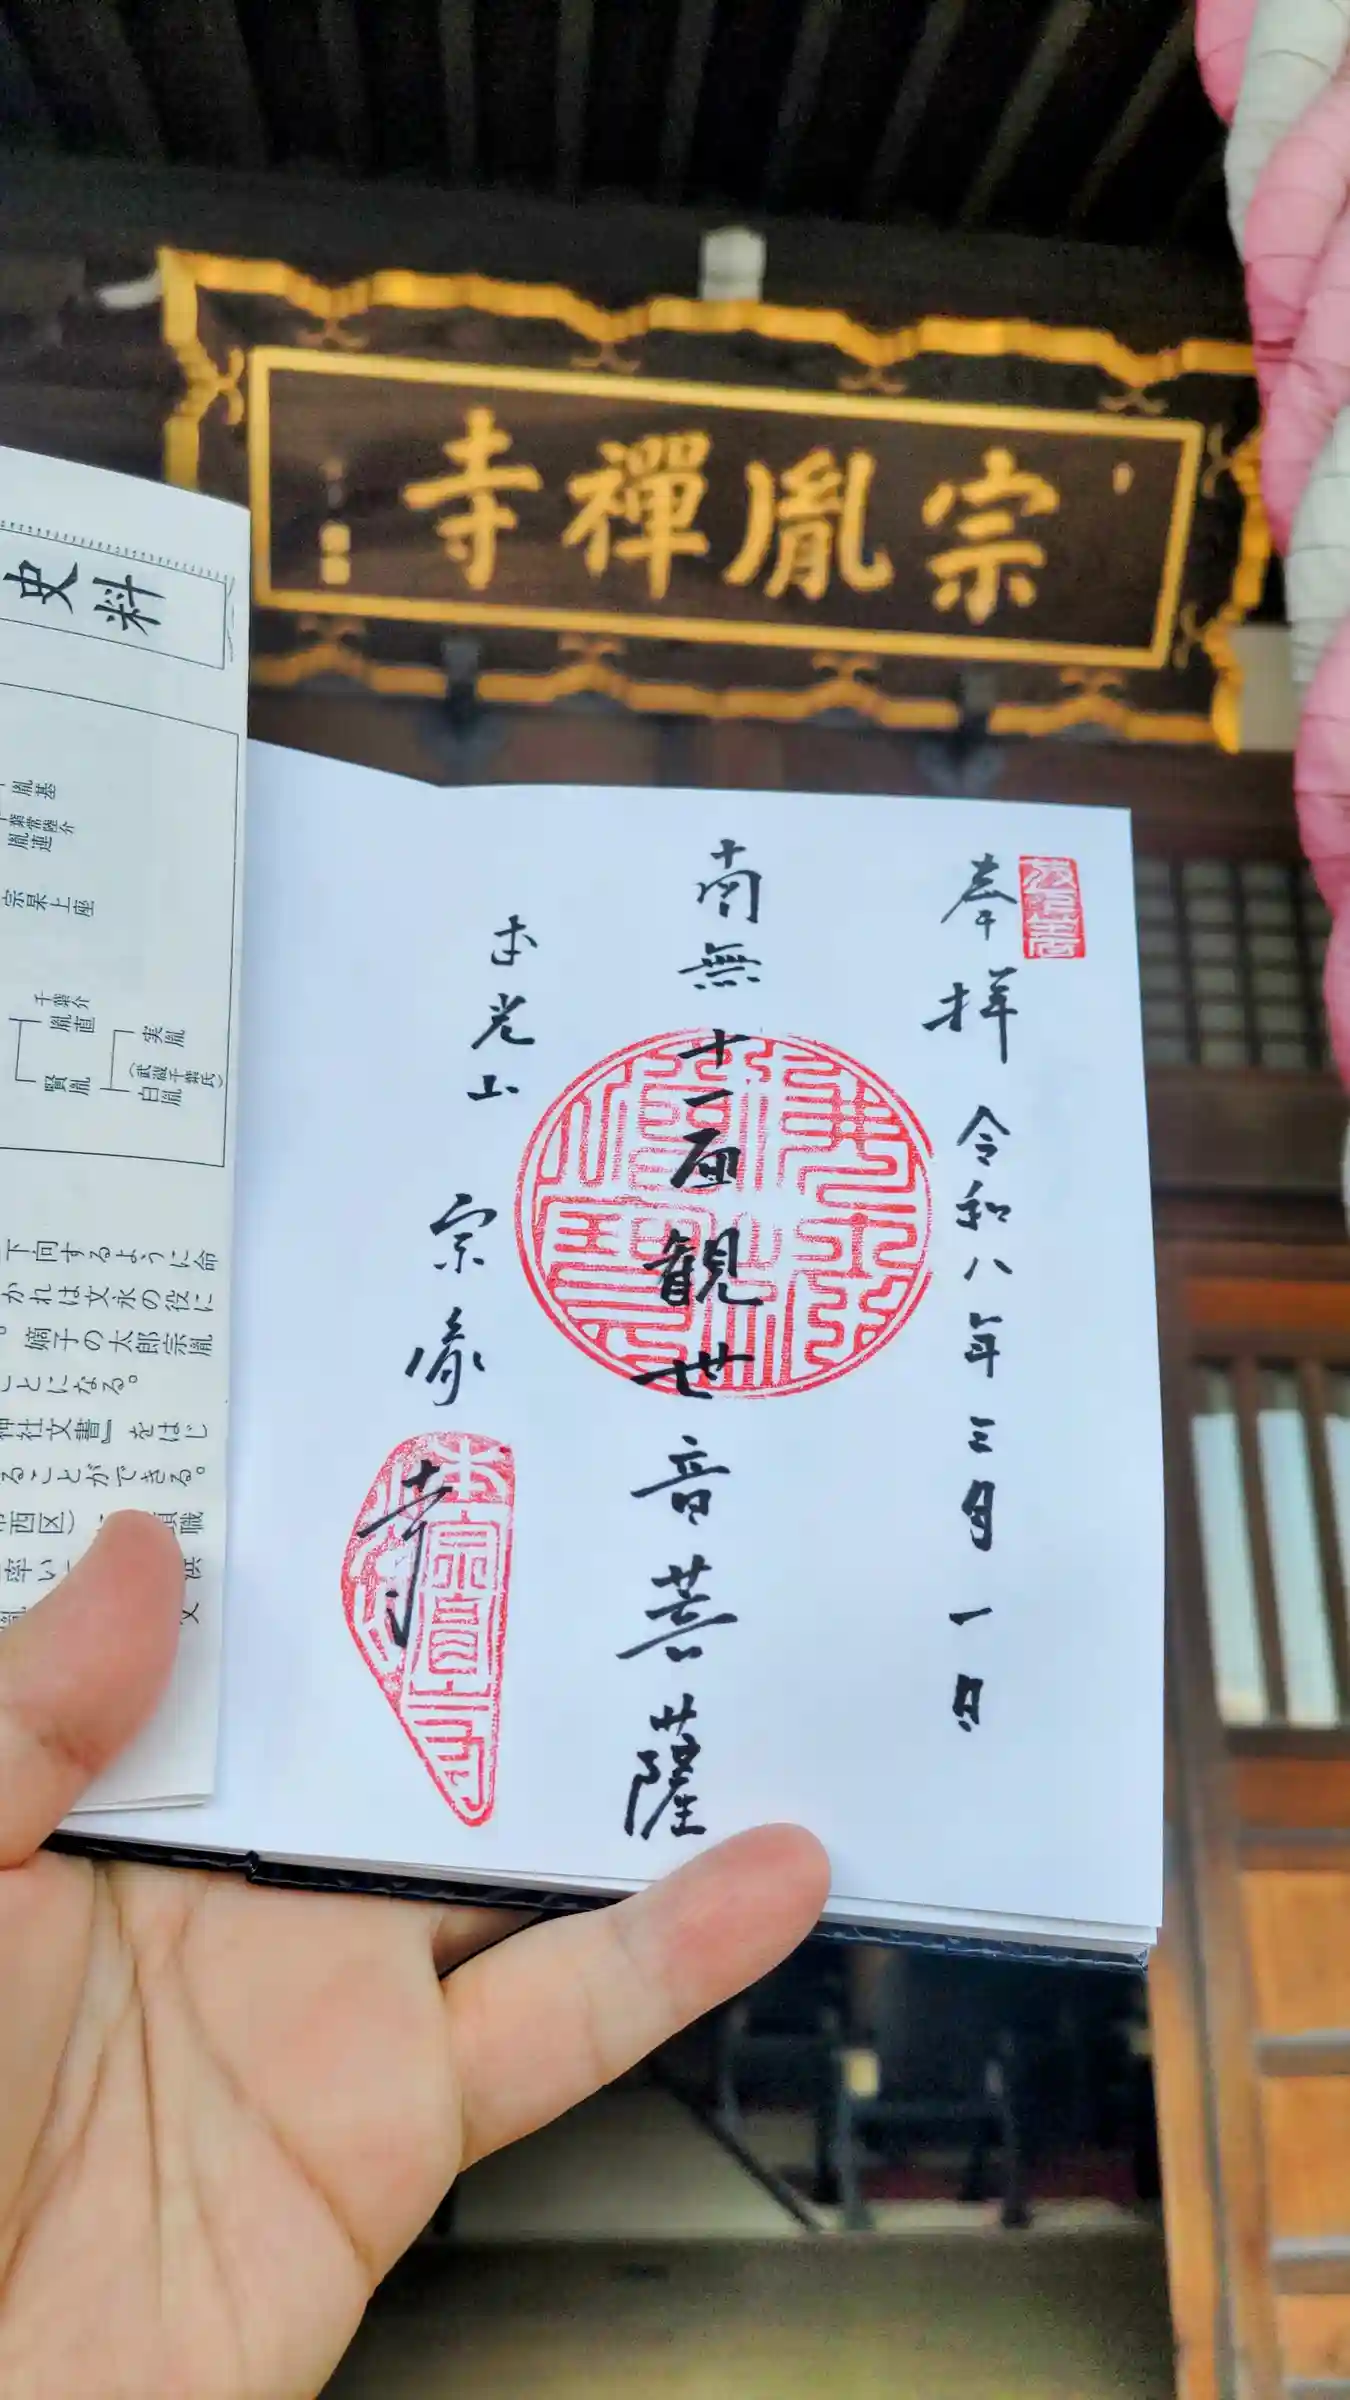 宗胤禪寺
奉拝 令和八年三月一日
南無十一面観世音菩薩
本光山 宗胤寺
史料
胤基
千葉常陸介
胤連
宗杲上座
千葉介
胤直
賢胤
実胤
(武蔵千葉氏)
自胤
下向するように命
かれは文永の役に
。嫡子の太郎宗胤
ことになる。
神社文書』をはじ
ることができる。
市西区)
職
率い